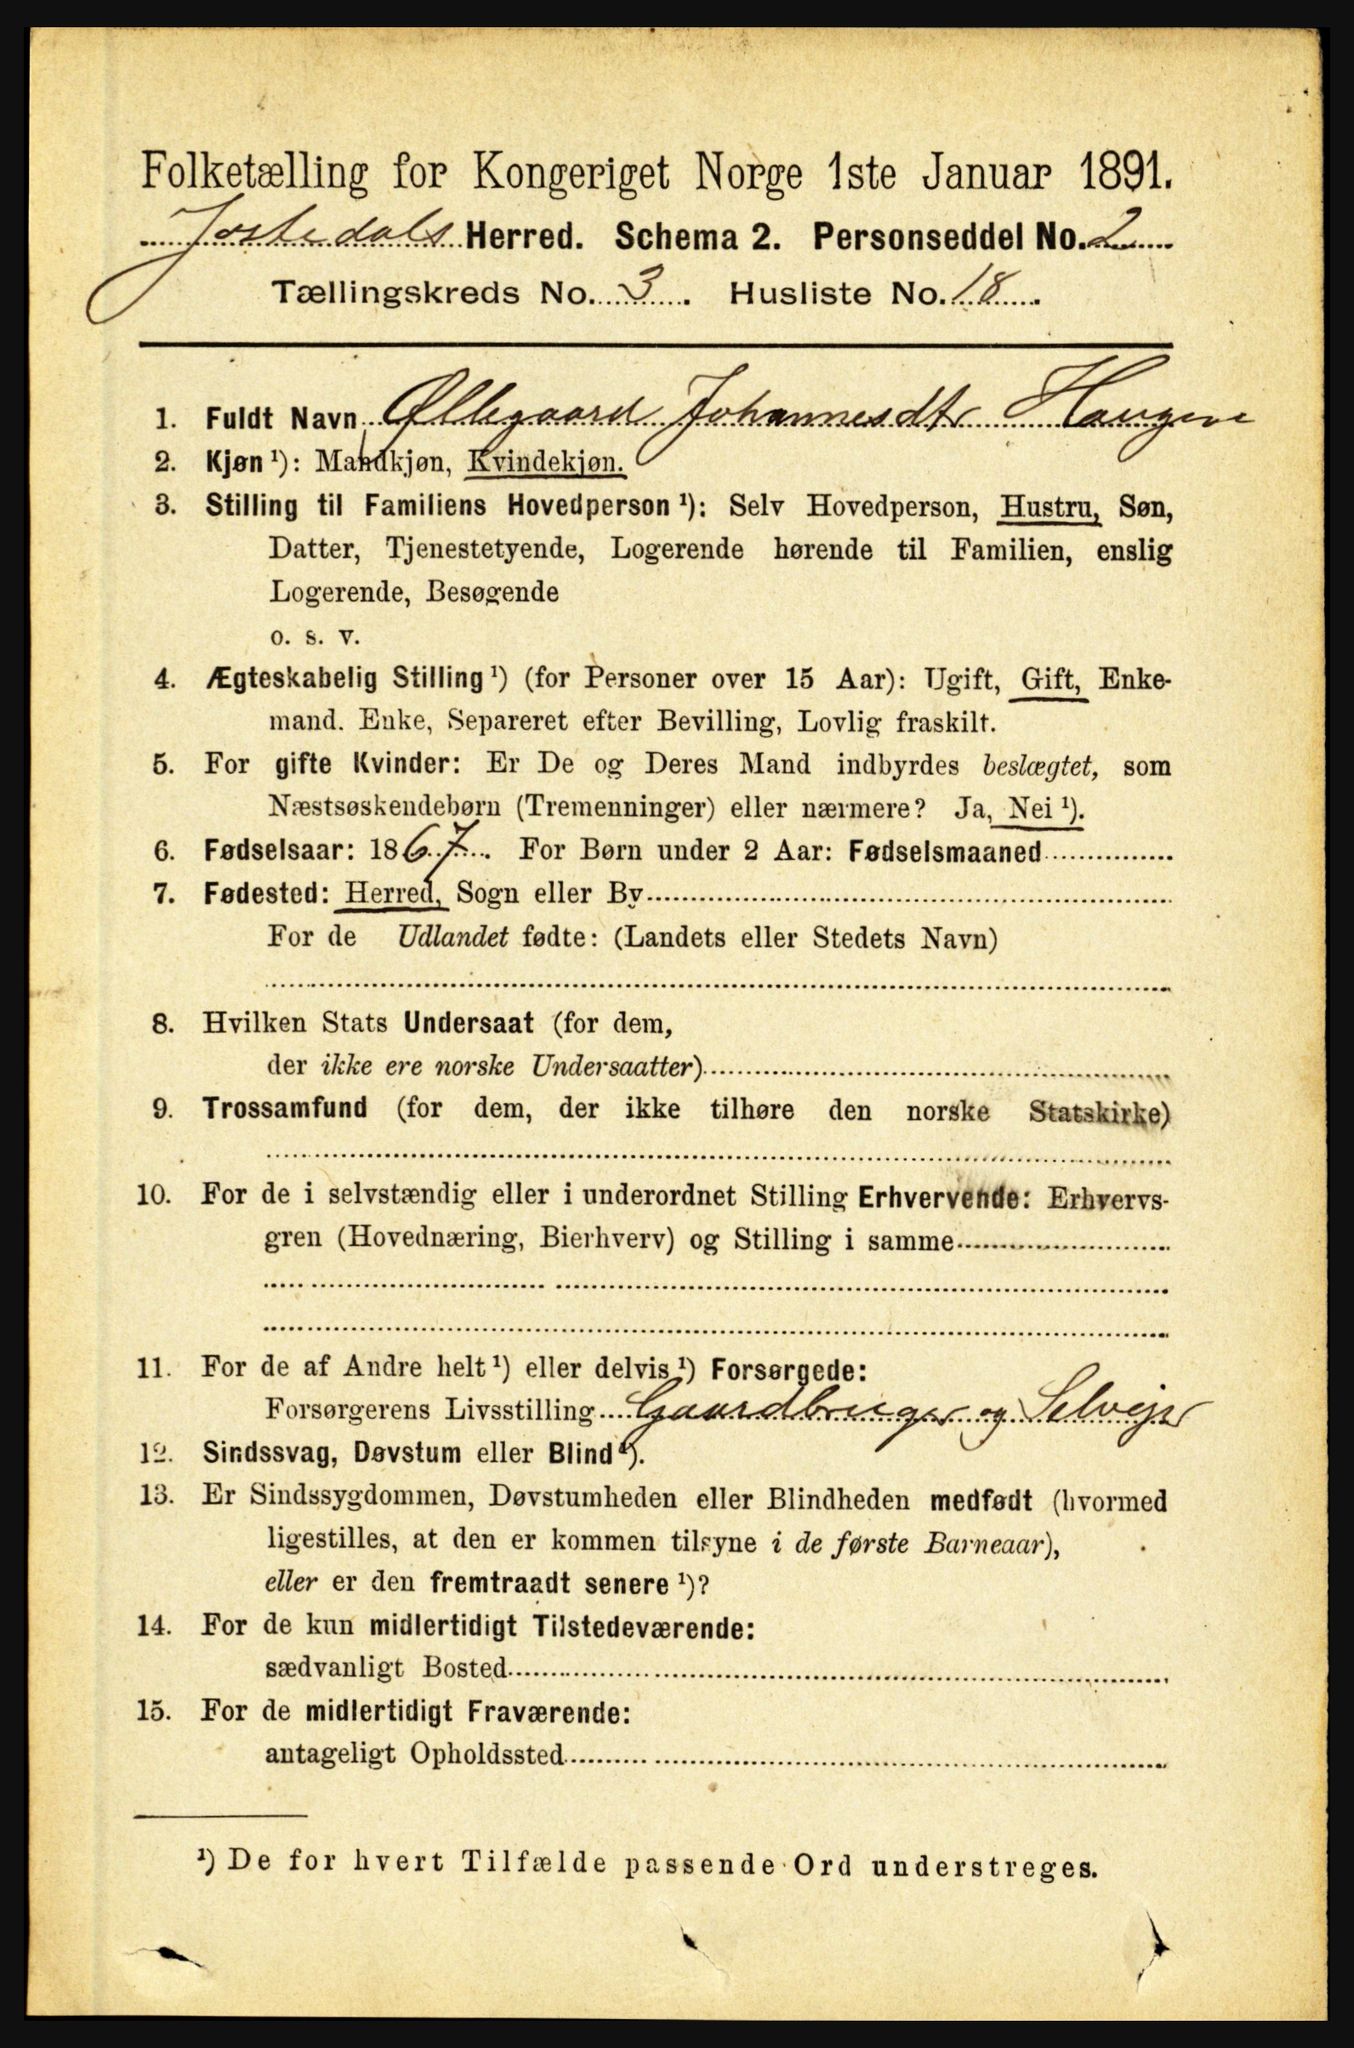 Folketælling for Kongeriget Norge 1ste Januar 1891.
Jostedals Herred. Schema 2. Personseddel No. 2
Tællingskreds No. 3. Husliste No. 18.
1. Fuldt Navn Øllegaard Johannesdtr Haugen
2. Kjøn ¹): Mandkjøn, Kvindekjøn.
3. Stilling til Familiens Hovedperson ¹): Selv Hovedperson, Hustru, Søn,
Datter, Tjenestetyende, Logerende hørende til Familien, enslig
Logerende, Besøgende
o. s. v.
4. Ægteskabelig Stilling ¹) (for Personer over 15 Aar): Ugift, Gift, Enke-
mand. Enke, Separeret efter Bevilling, Lovlig fraskilt.
5. For gifte Kvinder: Er De og Deres Mand indbyrdes beslægtet, som
Næstsøskendebørn (Tremenninger) eller nærmere? Ja, Nei ¹).
6. Fødselsaar: 1867. For Børn under 2 Aar: Fødselsmaaned
7. Fødested: Herred, Sogn eller By
For de Udlandet fødte: (Landets eller Stedets Navn)
8. Hvilken Stats Undersaat (for dem,
der ikke ere norske Undersaatter)
9. Trossamfund (for dem, der ikke tilhøre den norske Statskirke)
10. For de i selvstændig eller i underordnet Stilling Erhvervende: Erhvervs-
gren (Hovednæring, Bierhverv) og Stilling i samme
11. For de af Andre helt ¹) eller delvis ¹) Forsørgede:
Forsørgerens Livsstilling Gaardbruger og Selvejer
12. Sindssvag, Døvstum eller Blind ¹).
13. Er Sindssygdommen, Døvstumheden eller Blindheden medfødt (hvormed
ligestilles, at den er kommen tilsyne i de første Barneaar),
eller er den fremtraadt senere ¹)?
14. For de kun midlertidigt Tilstedeværende:
sædvanligt Bosted
15. For de midlertidigt Fraværende:
antageligt Opholdssted
¹) De for hvert Tilfælde passende Ord understreges.